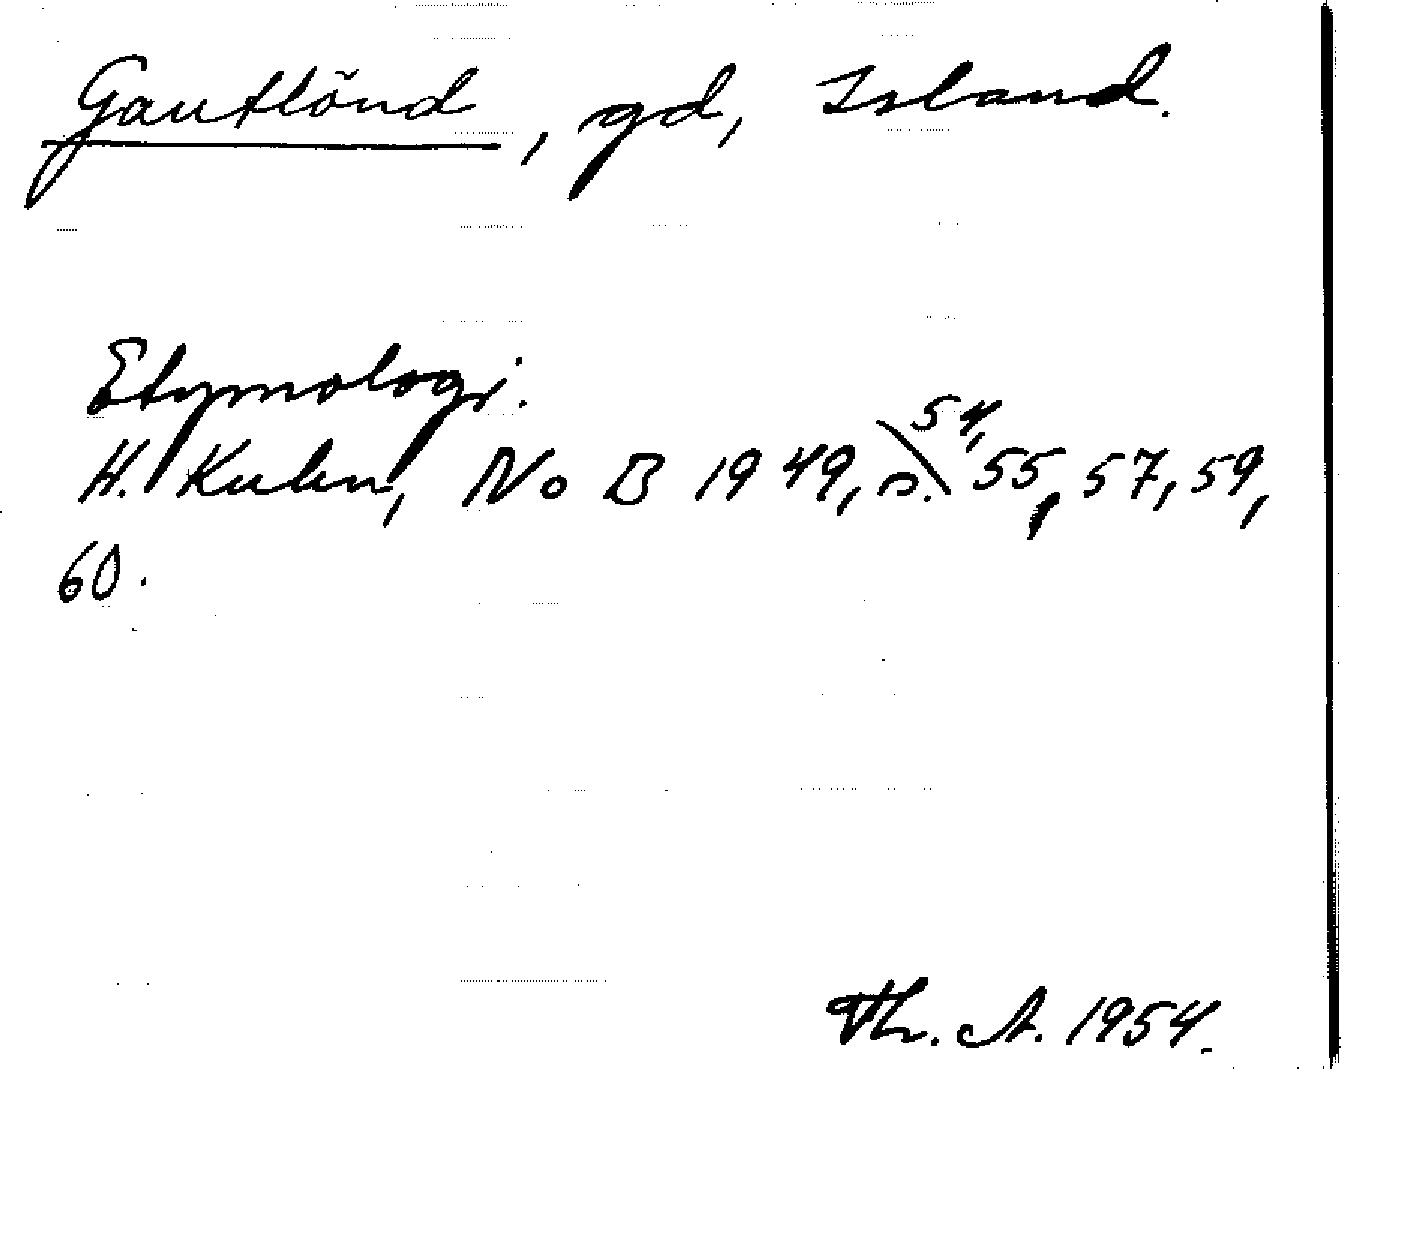 Gautlönd, gd, Island.
Etymologi.
H. Kuhn, NoB 1949, s. 54, 55, 57, 59,
60.
Th. A. 1954.